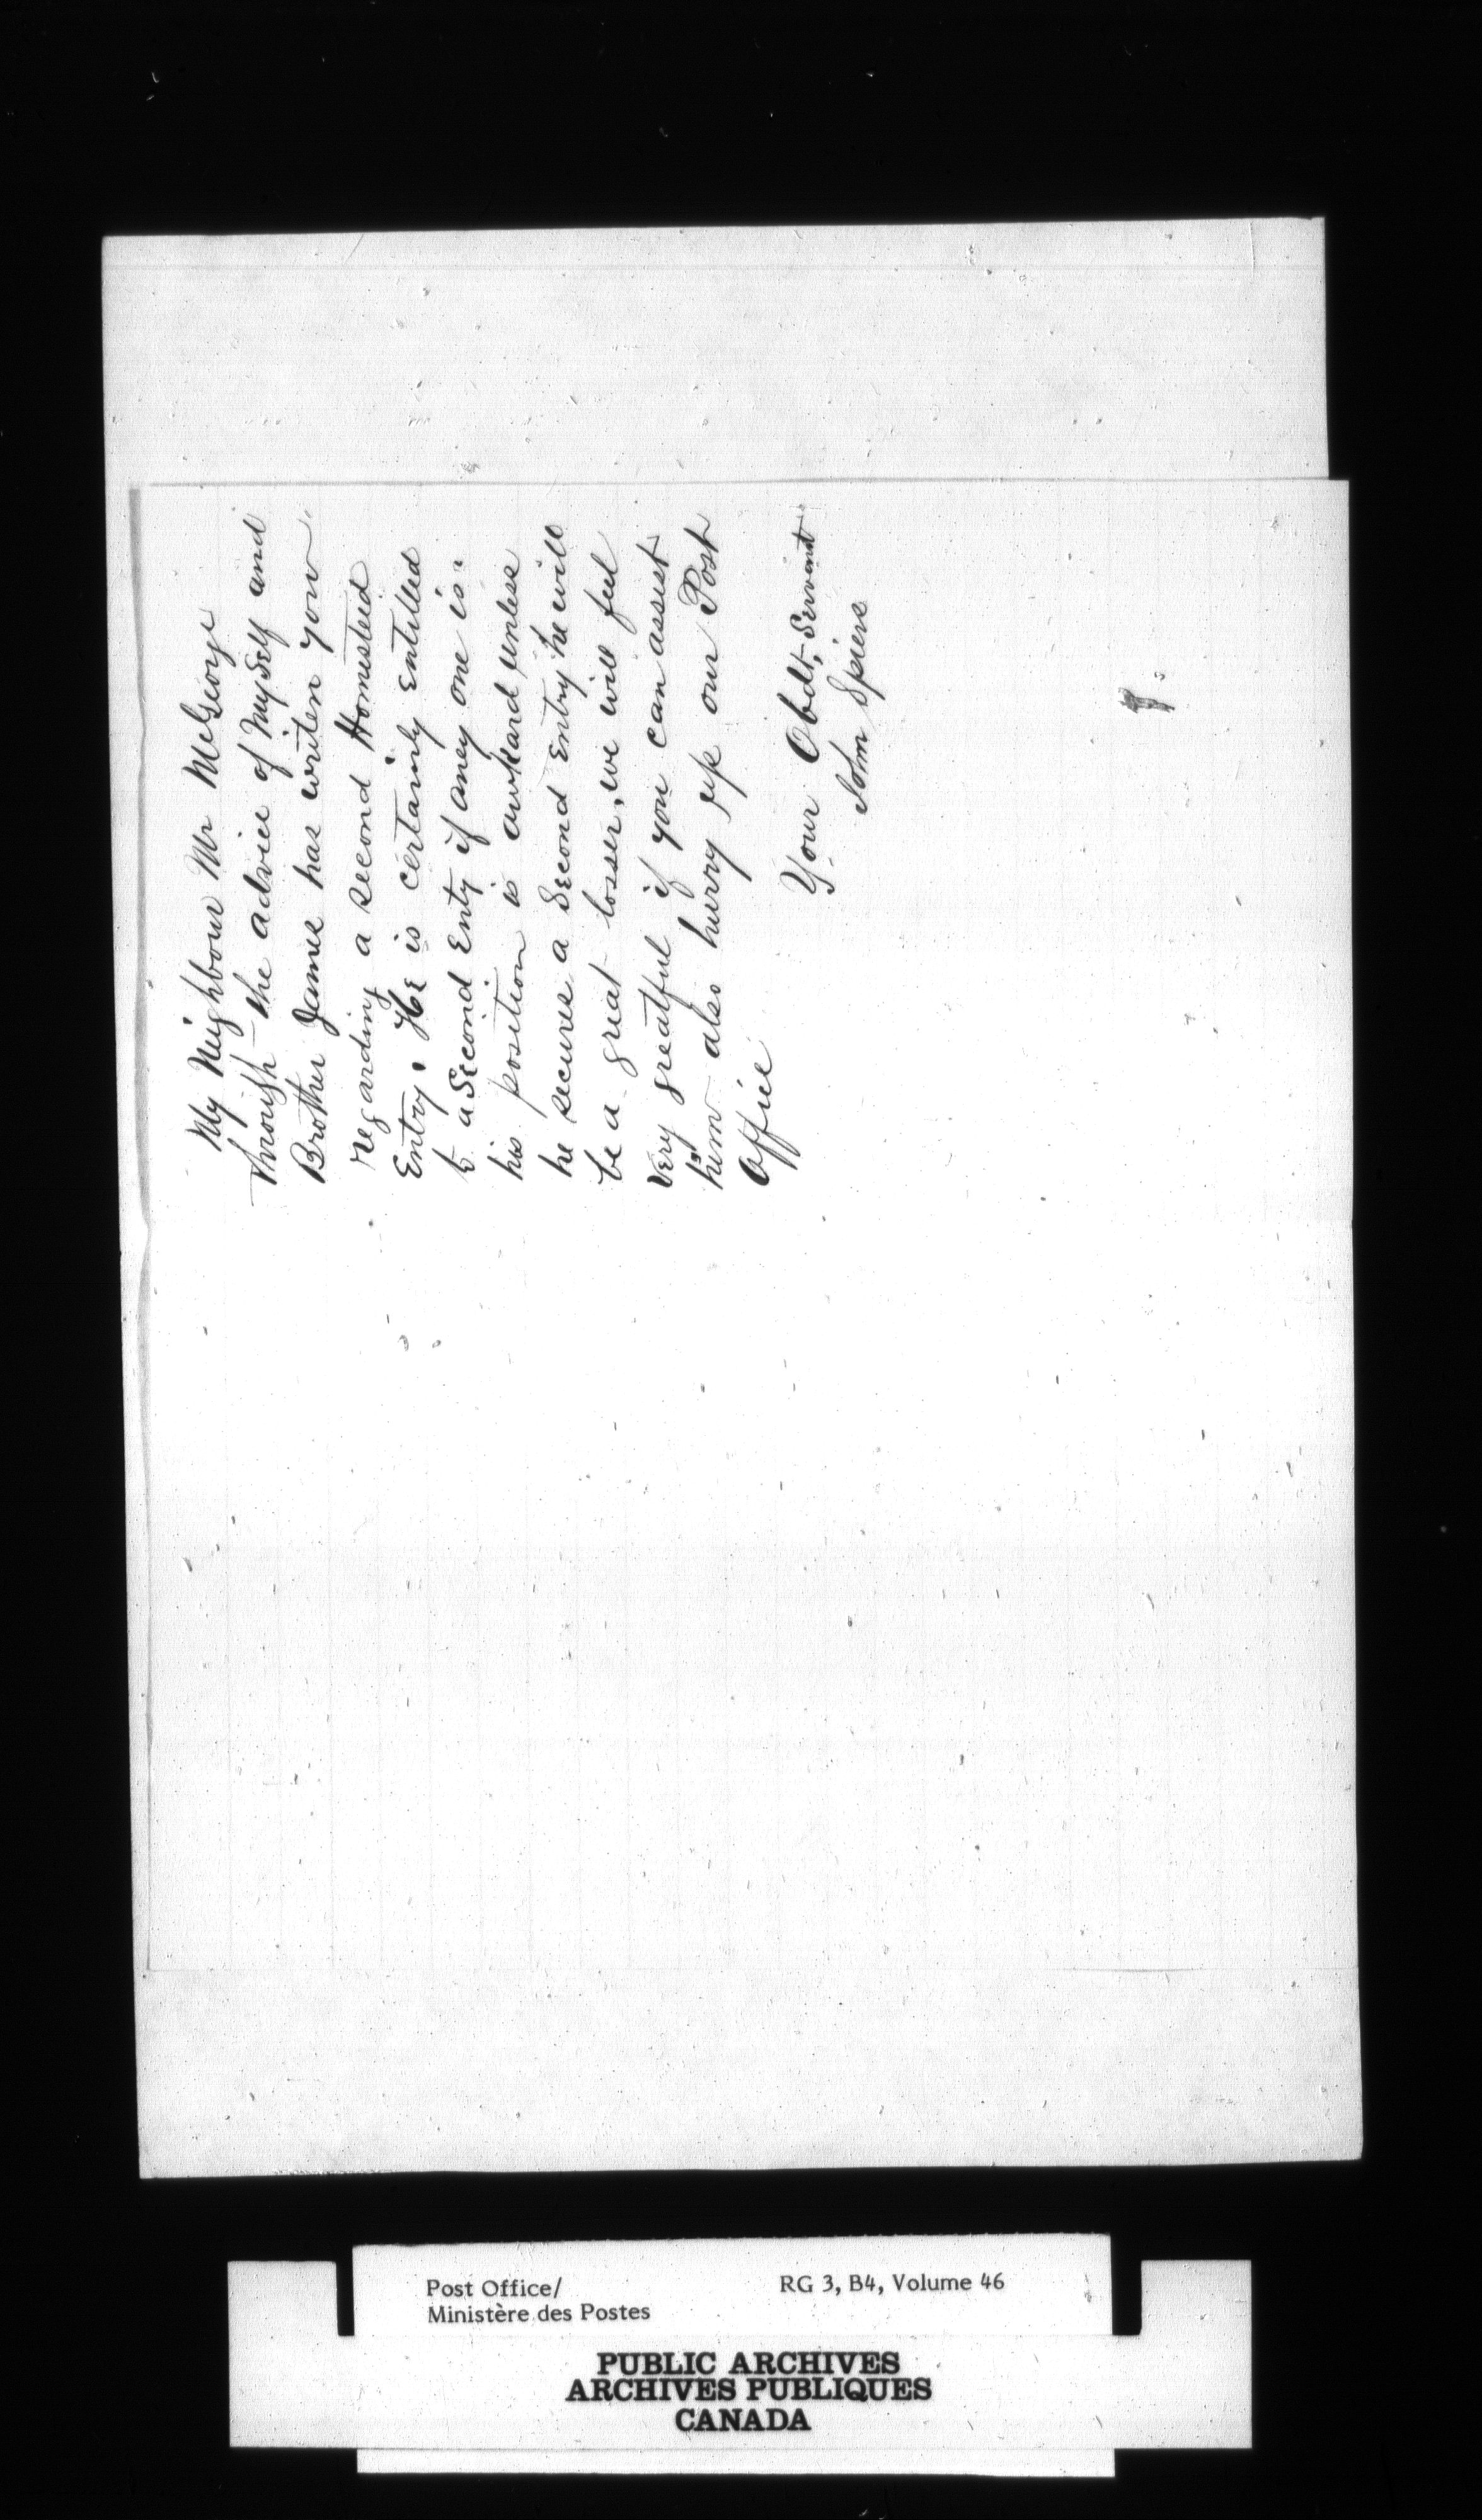 My Neighbour Mr McGeorge
through the advice of My Self and
Brother James has writen you
regarding a second Homested
Entry. He is certainly entitled
to a Second Enty if aney one is.
his position is awkard unless
he secures a Second Entry he will
be a great losser, we will feel
very greatful if you can assist
him also hurry up our Post
Office
Your Obdt, Servant
John Spiers
Post Office/
Ministère des Postes
RG 3, B4, Volume 46
PUBLIC ARCHIVES
ARCHIVES PUBLIQUES
CANADA